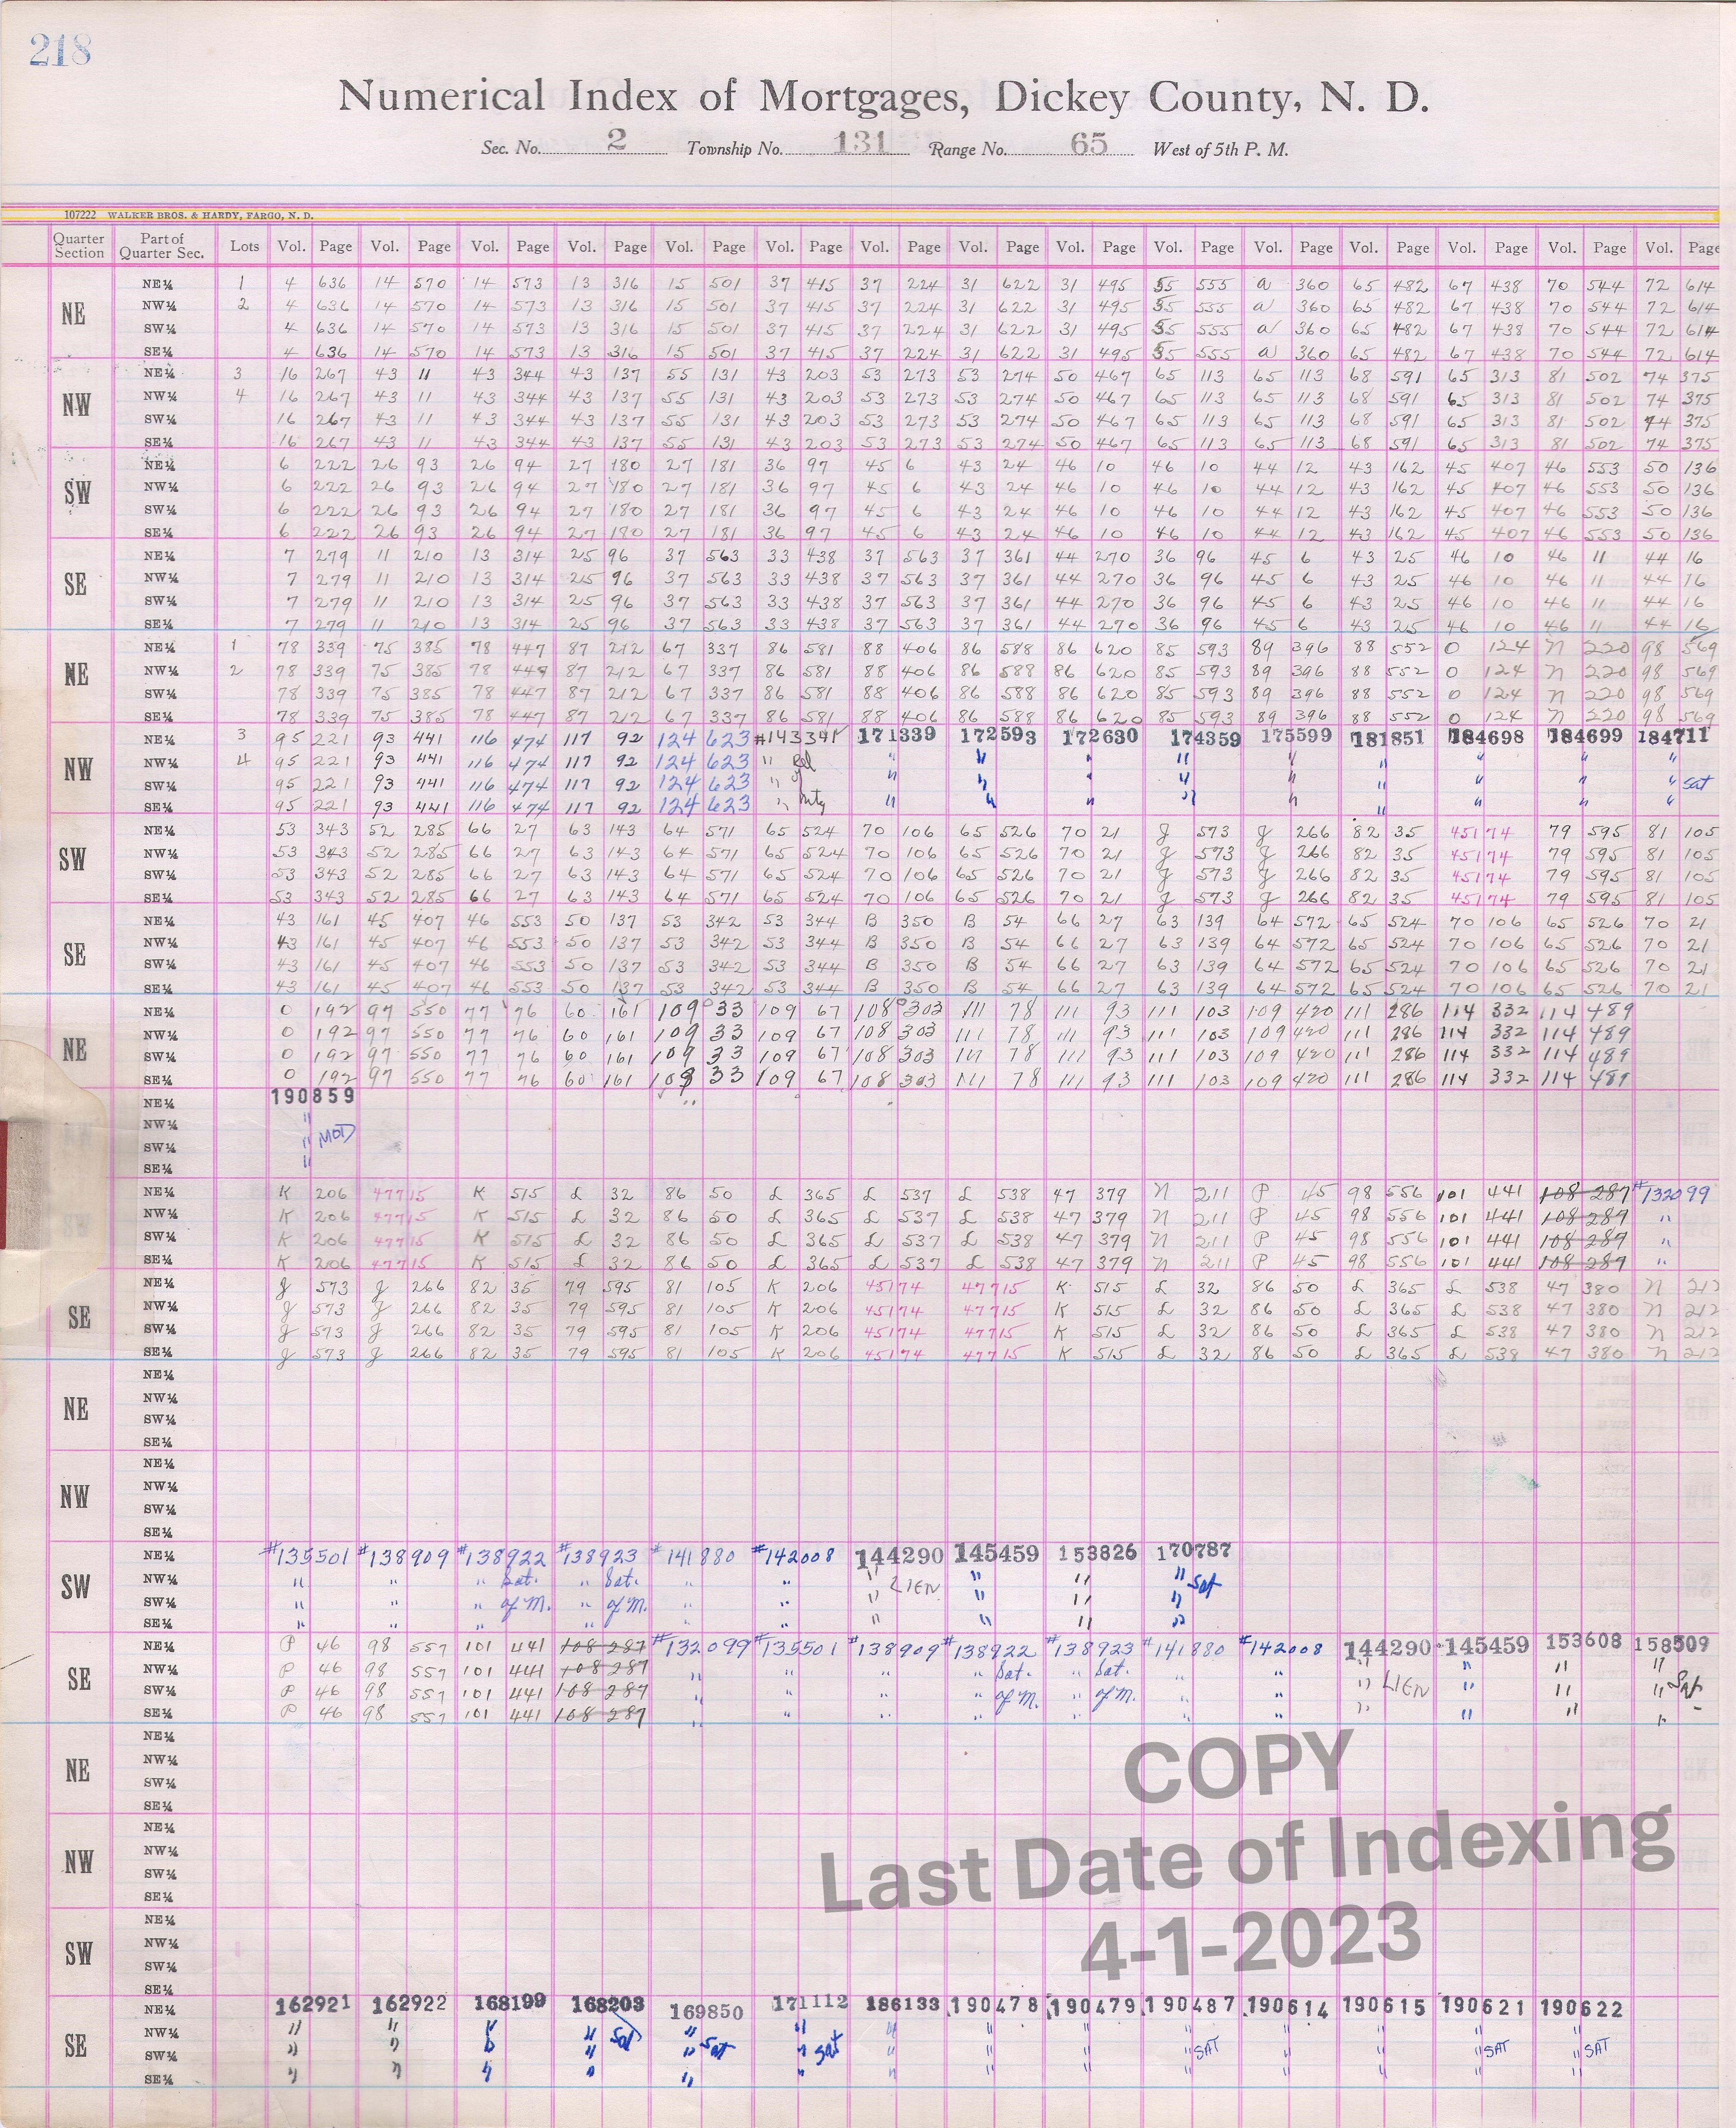 218
Numerical Index of Mortgages, Dickey County, N. D.
Sec. No. 2 Township No. 131 Range No. 65 West of 5th P. M.
107222 WALKER BROS. & HARDY, FARGO, N. D.
Quarter Section Part of Quarter Sec. Lots Vol. Page Vol. Page Vol. Page Vol. Page Vol. Page Vol. Page Vol. Page Vol. Page Vol. Page Vol. Page Vol. Page Vol. Page Vol. Page Vol. Page Vol. Page
NE NE¼ 1 4 636 14 570 14 573 13 316 15 501 37 415 37 224 31 622 31 495 35 555 a 360 65 482 67 438 70 544 72 614
NW¼ 2 4 636 14 570 14 573 13 316 15 501 37 415 37 224 31 622 31 495 35 555 a 360 65 482 67 438 70 544 72 614
SW¼ 4 636 14 570 14 573 13 316 15 501 37 415 37 224 31 622 31 495 35 555 a 360 65 482 67 438 70 544 72 614
SE¼ 4 636 14 570 14 573 13 316 15 501 37 415 37 224 31 622 31 495 35 555 a 360 65 482 67 438 70 544 72 614
NW NE¼ 3 16 267 43 11 43 344 43 137 55 131 43 203 53 273 53 274 50 467 65 113 65 113 68 591 65 313 81 502 74 375
NW¼ 4 16 267 43 11 43 344 43 137 55 131 43 203 53 273 53 274 50 467 65 113 65 113 68 591 65 313 81 502 74 375
SW¼ 16 267 43 11 43 344 43 137 55 131 43 203 53 273 53 274 50 467 65 113 65 113 68 591 65 313 81 502 74 375
SE¼ 16 267 43 11 43 344 43 137 55 131 43 203 53 273 53 274 50 467 65 113 65 113 68 591 65 313 81 502 74 375
SW NE¼ 6 222 26 93 26 94 27 180 27 181 36 97 45 6 43 24 46 10 46 10 44 12 43 162 45 407 46 553 50 136
NW¼ 6 222 26 93 26 94 27 180 27 181 36 97 45 6 43 24 46 10 46 10 44 12 43 162 45 407 46 553 50 136
SW¼ 6 222 26 93 26 94 27 180 27 181 36 97 45 6 43 24 46 10 46 10 44 12 43 162 45 407 46 553 50 136
SE¼ 6 222 26 93 26 94 27 180 27 181 36 97 45 6 43 24 46 10 46 10 44 12 43 162 45 407 46 553 50 136
SE NE¼ 7 279 11 210 13 314 25 96 37 563 33 438 37 563 37 361 44 270 36 96 45 6 43 25 46 10 46 11 44 16
NW¼ 7 279 11 210 13 314 25 96 37 563 33 438 37 563 37 361 44 270 36 96 45 6 43 25 46 10 46 11 44 16
SW¼ 7 279 11 210 13 314 25 96 37 563 33 438 37 563 37 361 44 270 36 96 45 6 43 25 46 10 46 11 44 16
SE¼ 7 279 11 210 13 314 25 96 37 563 33 438 37 563 37 361 44 270 36 96 45 6 43 25 46 10 46 11 44 16
NE NE¼ 1 78 339 75 385 78 447 87 212 67 337 86 581 88 406 86 588 86 620 85 593 89 396 88 552 O 124 N 220 98 569
NW¼ 2 78 339 75 385 78 447 87 212 67 337 86 581 88 406 86 588 86 620 85 593 89 396 88 552 O 124 N 220 98 569
SW¼ 78 339 75 385 78 447 87 212 67 337 86 581 88 406 86 588 86 620 85 593 89 396 88 552 O 124 N 220 98 569
SE¼ 78 339 75 385 78 447 87 212 67 337 86 581 88 406 86 588 86 620 85 593 89 396 88 552 O 124 N 220 98 569
NW NE¼ 3 95 221 93 441 116 474 117 92 124 623 171339 172593 172630 174359 175599 181851 184698 184699 184711
NW¼ 4 95 221 93 441 116 474 117 92 124 623 " Rel " " " " " " " " "
SW¼ 95 221 93 441 116 474 117 92 124 623 " of " " " " " " " " " Sat
SE¼ 95 221 93 441 116 474 117 92 124 623 " Mtg " " " " " " " " "
SW NE¼ 53 343 52 285 66 27 63 143 64 571 65 524 70 106 65 526 70 21 J 573 J 266 82 35 45174 79 595 81 105
NW¼ 53 343 52 285 66 27 63 143 64 571 65 524 70 106 65 526 70 21 J 573 J 266 82 35 45174 79 595 81 105
SW¼ 53 343 52 285 66 27 63 143 64 571 65 524 70 106 65 526 70 21 J 573 J 266 82 35 45174 79 595 81 105
SE¼ 53 343 52 285 66 27 63 143 64 571 65 524 70 106 65 526 70 21 J 573 J 266 82 35 45174 79 595 81 105
SE NE¼ 43 161 45 407 46 553 50 137 53 342 53 344 B 350 B 54 66 27 63 139 64 572 65 524 70 106 65 526 70 21
NW¼ 43 161 45 407 46 553 50 137 53 342 53 344 B 350 B 54 66 27 63 139 64 572 65 524 70 106 65 526 70 21
SW¼ 43 161 45 407 46 553 50 137 53 342 53 344 B 350 B 54 66 27 63 139 64 572 65 524 70 106 65 526 70 21
SE¼ 43 161 45 407 46 553 50 137 53 342 53 344 B 350 B 54 66 27 63 139 64 572 65 524 70 106 65 526 70 21
NE NE¼ O 192 97 550 77 76 60 161 109 33 109 67 108 303 111 78 111 93 111 103 109 420 111 286 114 332 114 489
NW¼ O 192 97 550 77 76 60 161 109 33 109 67 108 303 111 78 111 93 111 103 109 420 111 286 114 332 114 489
SW¼ O 192 97 550 77 76 60 161 109 33 109 67 108 303 111 78 111 93 111 103 109 420 111 286 114 332 114 489
SE¼ O 192 97 550 77 76 60 161 109 33 109 67 108 303 111 78 111 93 111 103 109 420 111 286 114 332 114 489
NE¼ 190859
NW¼ "
SW¼ " MOD
SE¼ "
NE¼ K 206 47715 K 515 L 32 86 50 L 365 L 537 L 538 47 379 N 211 P 45 98 556 101 441 108 287 #132099
NW¼ K 206 47715 K 515 L 32 86 50 L 365 L 537 L 538 47 379 N 211 P 45 98 556 101 441 108 287 "
SW¼ K 206 47715 K 515 L 32 86 50 L 365 L 537 L 538 47 379 N 211 P 45 98 556 101 441 108 287 "
SE¼ K 206 47715 K 515 L 32 86 50 L 365 L 537 L 538 47 379 N 211 P 45 98 556 101 441 108 287 "
SE NE¼ J 573 J 266 82 35 79 595 81 105 K 206 45174 47715 K 515 L 32 86 50 L 365 L 538 47 380 N 212
NW¼ J 573 J 266 82 35 79 595 81 105 K 206 45174 47715 K 515 L 32 86 50 L 365 L 538 47 380 N 212
SW¼ J 573 J 266 82 35 79 595 81 105 K 206 45174 47715 K 515 L 32 86 50 L 365 L 538 47 380 N 212
SE¼ J 573 J 266 82 35 79 595 81 105 K 206 45174 47715 K 515 L 32 86 50 L 365 L 538 47 380 N 212
NE NE¼
NW¼
SW¼
SE¼
NW NE¼
NW¼
SW¼
SE¼
SW NE¼ #135501 #138909 #138922 #138923 #141880 #142008 144290 145459 153826 170787
NW¼ " " " Sat. " Sat. " " " LIEN " " " Sat
SW¼ " " " of M. " of M. " " " " " "
SE¼ " " " " " " " " " "
SE NE¼ P 46 98 557 101 441 108 287 #132099 #135501 #138909 #138922 #138923 #141880 #142008 144290 145459 153608 158509
NW¼ P 46 98 557 101 441 108 287 " " " " Sat. " Sat. " " " " " "
SW¼ P 46 98 557 101 441 108 287 " " " " of M. " of M. " " " LIEN " " " Sat
SE¼ P 46 98 557 101 441 108 287 " " " " " " " " " " "
NE NE¼
NW¼
SW¼
SE¼
NW NE¼
NW¼
SW¼
SE¼
SW NE¼
NW¼
SW¼
SE¼
SE NE¼ 162921 162922 168199 168203 169850 171112 186133 190478 190479 190487 190614 190615 190621 190622
NW¼ " " " " Sat " " " " " " " " " "
SW¼ " " " " " Sat " Sat " " " " SAT " " " SAT " SAT
SE¼ " " " " " " " " " " " " " "
COPY
Last Date of Indexing
4-1-2023